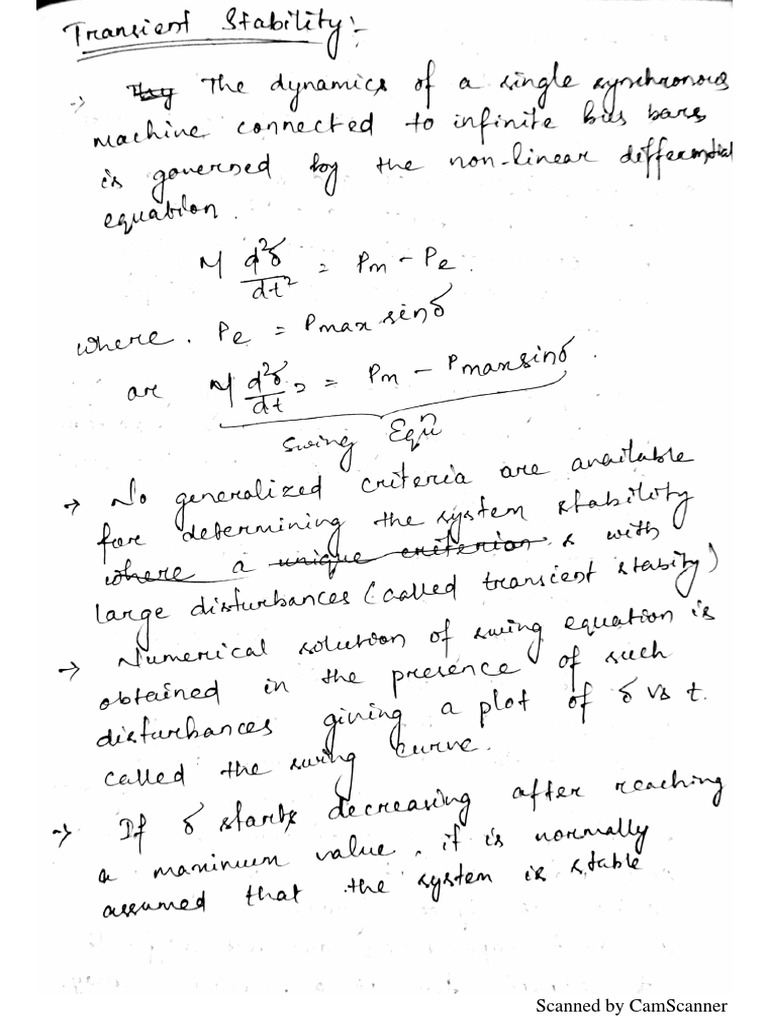 Transient Stability:-
-> The dynamics of a single synchronous
machine connected to infinite bus bars
is governed by the non-linear differential
equation.
M d²δ/dt² = Pm - Pe.
where. Pe = Pmax sinδ
are M d²δ/dt² = Pm - Pmax sinδ.
Swing Equn
-> No generalized criteria are available
for determining the system stability
where a unique criterion s with
large disturbances (called transient stabity)
-> Numerical solution of swing equation is
obtained in the presence of such
disturbances giving a plot of δ vs t.
called the swing curve.
-> If δ starts decreasing after reaching
a maximum value, it is normally
assumed that the system is stable
Scanned by CamScanner